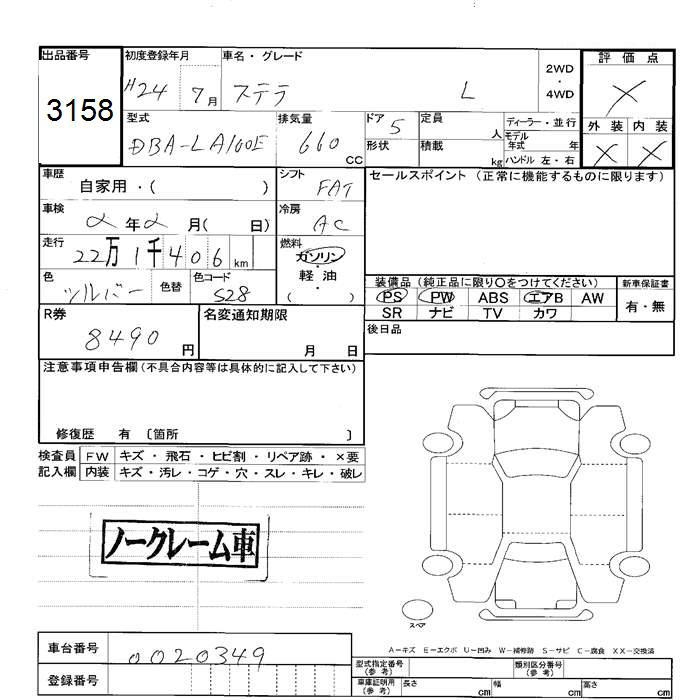 出品番号 初度登録年月 車名・グレード 2WD・4WD 評価点
3158 H24 7月 ステラ L X
型式 排気量 ドア 5 定員 人 ディーラー・並行 外装 内装
DBA-LA100E 660 CC 形状 積載 kg モデル年式 年 ハンドル 左・右 X X
車歴 自家用・( ) シフト FAT セールスポイント (正常に機能するものに限ります)
車検 2年2月( 日) 冷房 AC
走行 22万1千406km 燃料 ガソリン・軽油・( )
色 シルバー 色替 色コード S28 装備品 (純正品に限り○をつけてください) 新車保証書
PS PW ABS エアB AW 有・無
SR ナビ TV カワ
R券 8490円 名変通知期限 月 日 後日品
注意事項申告欄 (不具合内容等は具体的に記入して下さい)
修復歴 有 〔箇所 〕
検査員 FW キズ・飛石・ヒビ割・リペア跡・×要
記入欄 内装 キズ・汚レ・コゲ・穴・スレ・キレ・破レ
ノークレーム車
スペア
A-キズ E-エクボ U-凹み W-補修跡 S-サビ C-腐食 XX-交換済
車台番号 0020349 型式指定番号 (参考) 類別区分番号 (参考)
登録番号 車庫証明用 (参考) 長さ cm 幅 cm 高さ cm